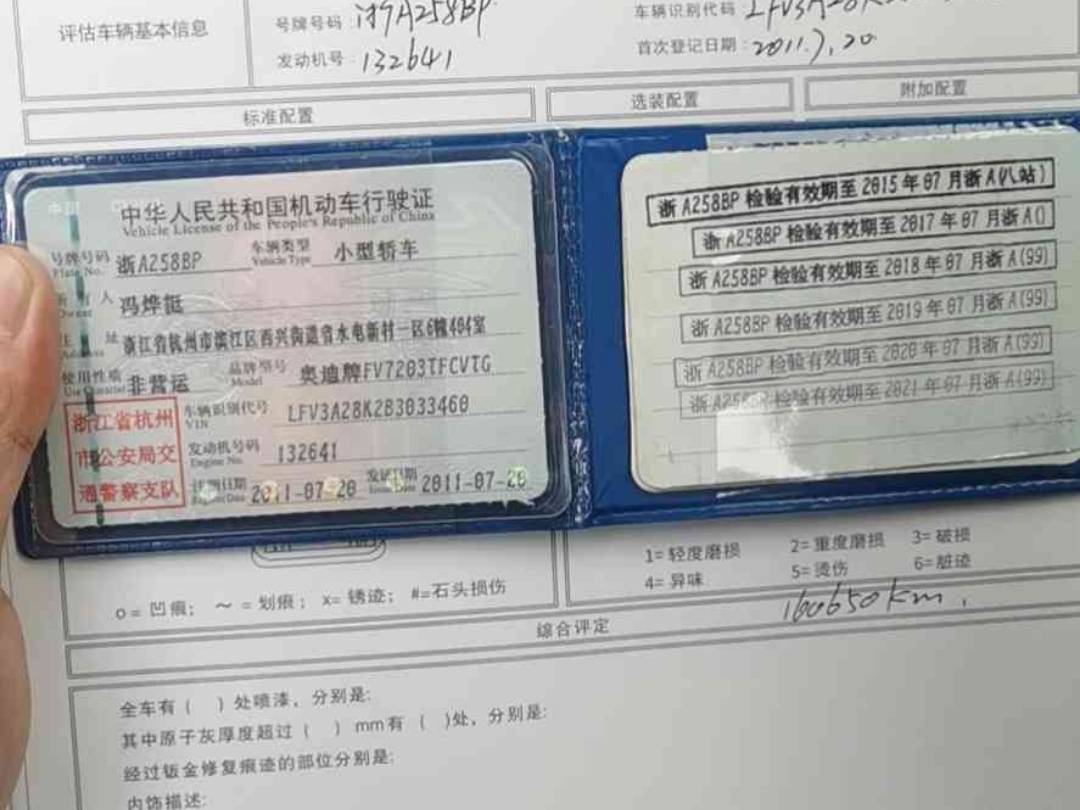 评估车辆基本信息
号牌号码：浙A258BP
车辆识别代码：
发动机号：132641
首次登记日期：2011.7.20
标准配置
选装配置
附加配置
中华人民共和国机动车行驶证
Vehicle License of the People's Republic of China
号牌号码 Plate No. 浙A258BP 车辆类型 Vehicle Type 小型轿车
所有人 Owner 冯烨挺
住址 Address 浙江省杭州市滨江区西兴街道省水电新村一区6幢404室
使用性质 Use Character 非营运 品牌型号 Model 奥迪牌FV7203TFCVTG
浙江省杭州
市公安局交
通警察支队
车辆识别代号 VIN LFV3A28K2B3033460
发动机号码 Engine No. 132641
注册日期 Register Date 2011-07-20 发证日期 Issue Date 2011-07-20
浙A258BP 检验有效期至 2015年07月浙A(八站)
浙A258BP 检验有效期至 2017年07月浙A()
浙A258BP 检验有效期至 2018年07月浙A(99)
浙A258BP 检验有效期至 2019年07月浙A(99)
浙A258BP 检验有效期至 2020年07月浙A(99)
浙A258BP 检验有效期至 2021年07月浙A(99)
o=凹痕；～=划痕；x=锈迹；#=石头损伤
1=轻度磨损 2=重度磨损 3=破损
4=异味 5=烫伤 6=脏迹
160650km.
综合评定
全车有（ ）处喷漆，分别是:
其中原子灰厚度超过（ ）mm有（ ）处，分别是:
经过钣金修复痕迹的部位分别是:
内饰描述: